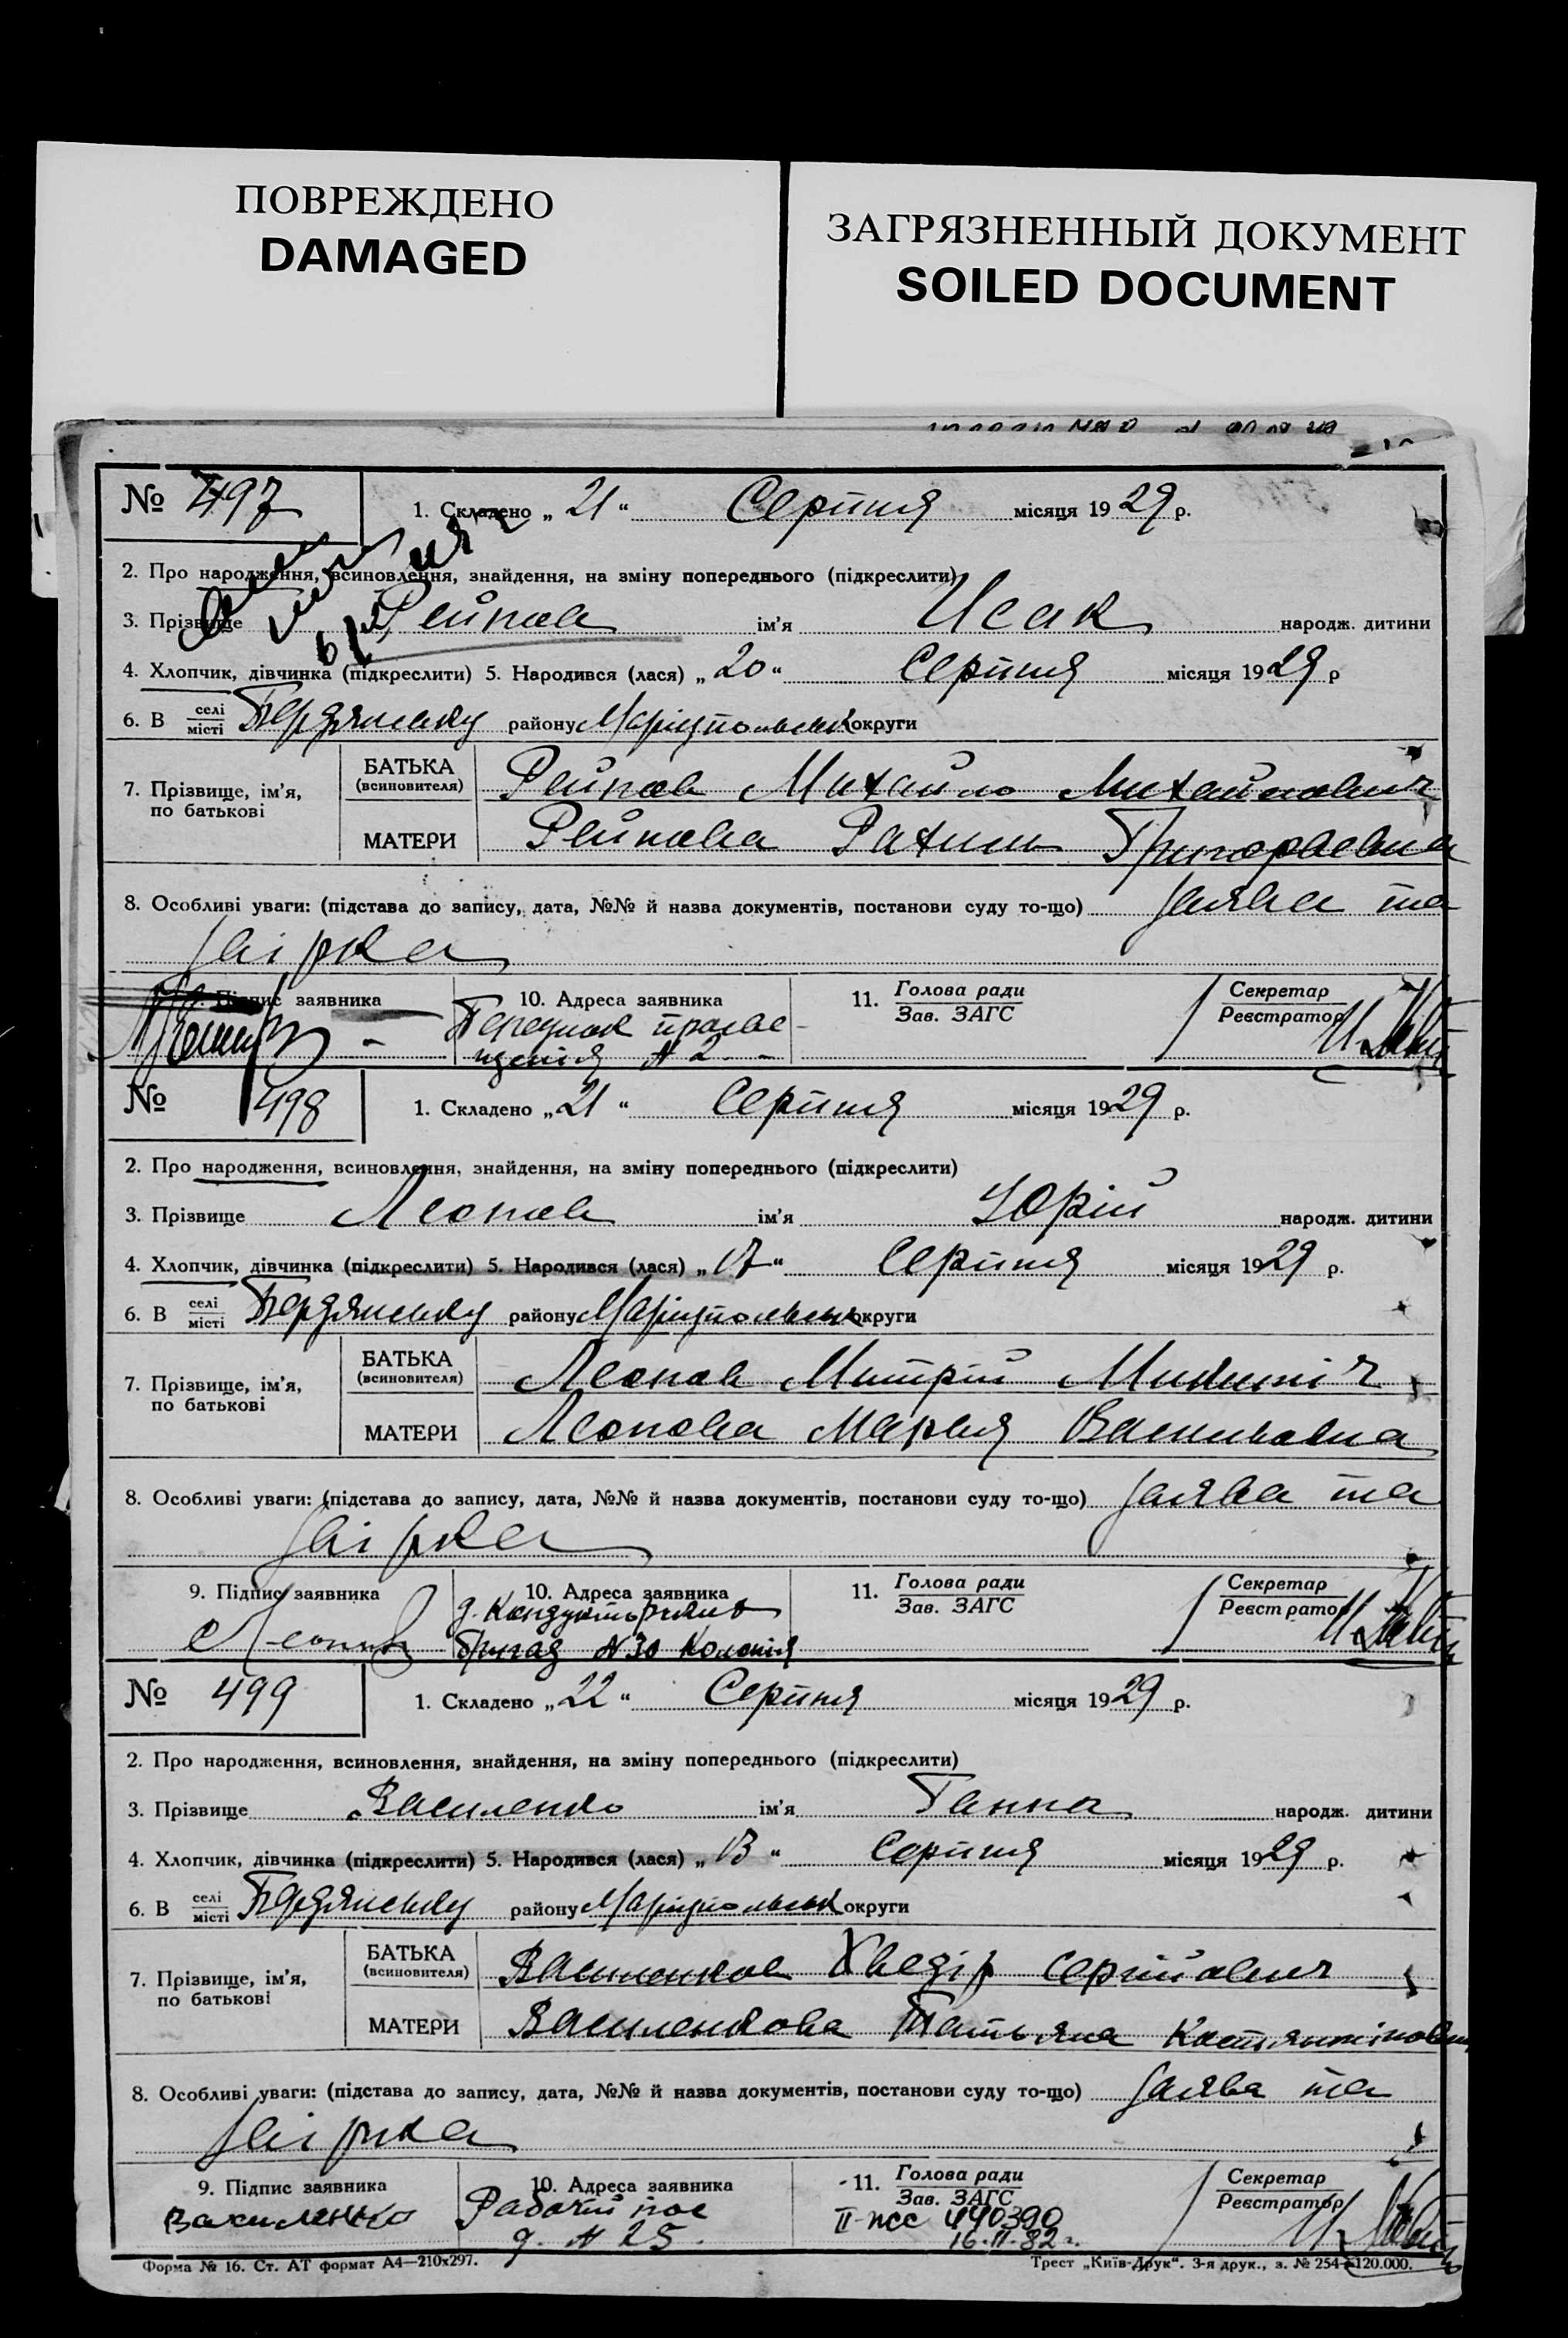 ПОВРЕЖДЕНО
DAMAGED
ЗАГРЯЗНЕННЫЙ ДОКУМЕНТ
SOILED DOCUMENT
№ 497
1. Складено „ 21 “ Серпня місяця 1929 р.
2. Про народження, всиновлення, знайдення, на зміну попереднього (підкреслити)
3. Прізвище Рейпов ім'я Исак народж. дитини
4. Хлопчик, дівчинка (підкреслити) 5. Народився (лася) „ 20 “ Серпня місяця 1929 р
6. В селі/місті Бердянську району Маріупольськ округи
7. Прізвище, ім'я, по батькові
БАТЬКА (всиновителя) Рейпов Михайло Михайлович
МАТЕРИ Рейпова Рахиль
8. Особливі уваги: (підстава до запису, дата, №№ й назва документів, постанови суду то-що) Заява та
звірка
9. Підпис заявника
10. Адреса заявника
№ 2
11. Голова ради / Зав. ЗАГС
Секретар / Реєстратор
№ 498
1. Складено „ 21 “ Серпня місяця 1929 р.
2. Про народження, всиновлення, знайдення, на зміну попереднього (підкреслити)
3. Прізвище Леонов ім'я Юрій народж. дитини
4. Хлопчик, дівчинка (підкреслити) 5. Народився (лася) „ 17 “ Серпня місяця 1929 р.
6. В селі/місті Бердянську району Маріупольськ округи
7. Прізвище, ім'я, по батькові
БАТЬКА (всиновителя) Леонов Митрій
МАТЕРИ Леонова Марья Васильовна
8. Особливі уваги: (підстава до запису, дата, №№ й назва документів, постанови суду то-що) Заява та
звірка
9. Підпис заявника
10. Адреса заявника
д. Кондукторських
бригад № 30 Колонія
11. Голова ради / Зав. ЗАГС
Секретар / Реєстратор
№ 499
1. Складено „ 22 “ Серпня місяця 1929 р.
2. Про народження, всиновлення, знайдення, на зміну попереднього (підкреслити)
3. Прізвище Василенко ім'я Ганна народж. дитини
4. Хлопчик, дівчинка (підкреслити) 5. Народився (лася) „ 13 “ Серпня місяця 1929 р.
6. В селі/місті Бердянську району Маріупольськ округи
7. Прізвище, ім'я, по батькові
БАТЬКА (всиновителя) Василенков Хведір Сергійович
МАТЕРИ Василенкова Татьяна
8. Особливі уваги: (підстава до запису, дата, №№ й назва документів, постанови суду то-що) Заява та
звірка
9. Підпис заявника
Василенко
10. Адреса заявника
Рабочій пос
д. № 25.
11. Голова ради / Зав. ЗАГС
440390
16.II.82 г.
Секретар / Реєстратор
Форма № 16. Ст. АТ формат А4—210х297.
Трест „Київ-Друк“. 3-я друк., з. № 254—120.000.